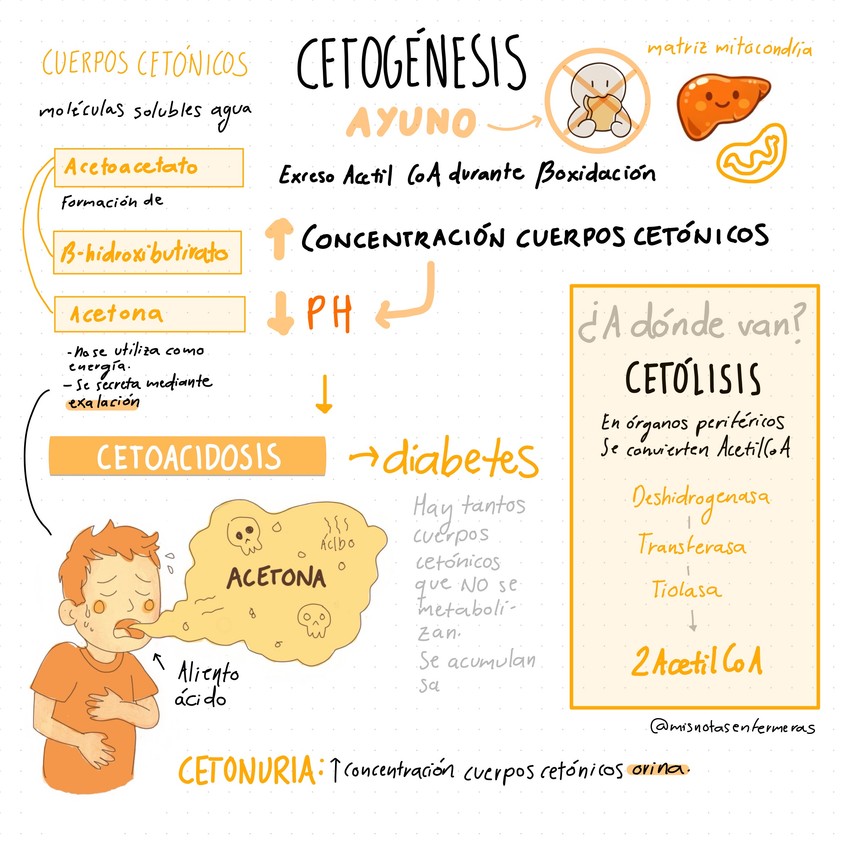 CUERPOS CETÓNICOS
moléculas solubles agua
Acetoacetato
Formación de
β-hidroxibutirato
Acetona
-No se utiliza como
energía.
- Se secreta mediante
exalación
CETOGÉNESIS
AYUNO
matriz mitocondria
Exreso Acetil CoA durante βoxidación
↑ CONCENTRACIÓN CUERPOS CETÓNICOS
↓ PH
CETOACIDOSIS
→ diabetes
Hay tantos
cuerpos
cetónicos
que NO se
metaboli-
zan.
Se acumulan
sa
ACETONA
ÁCIDO
Aliento
ácido
¿A dónde van?
CETÓLISIS
En órganos periféricos
Se convierten Acetil CoA
Deshidrogenasa
Transferasa
Tiolasa
2 Acetil CoA
@misnotasenfermeras
CETONURIA: ↑ Concentración cuerpos cetónicos orina.